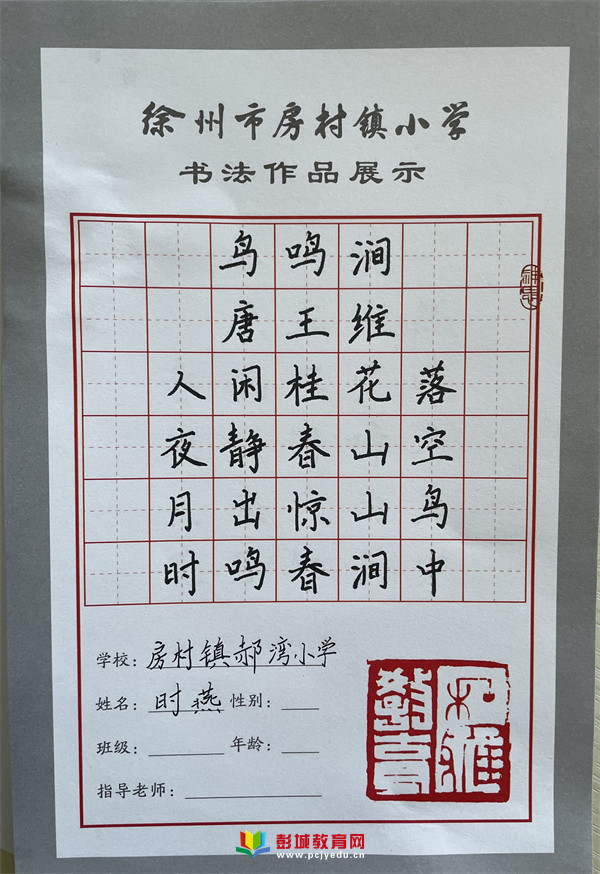 徐州市房村镇小学
书法作品展示
鸟鸣涧
唐王维
人闲桂花落
夜静春山空
月出惊山鸟
时鸣春涧中
学校：房村镇郝湾小学
姓名：时燕 性别：
班级： 年龄：
指导老师：
彭城教育网
www.pcjyedu.cn